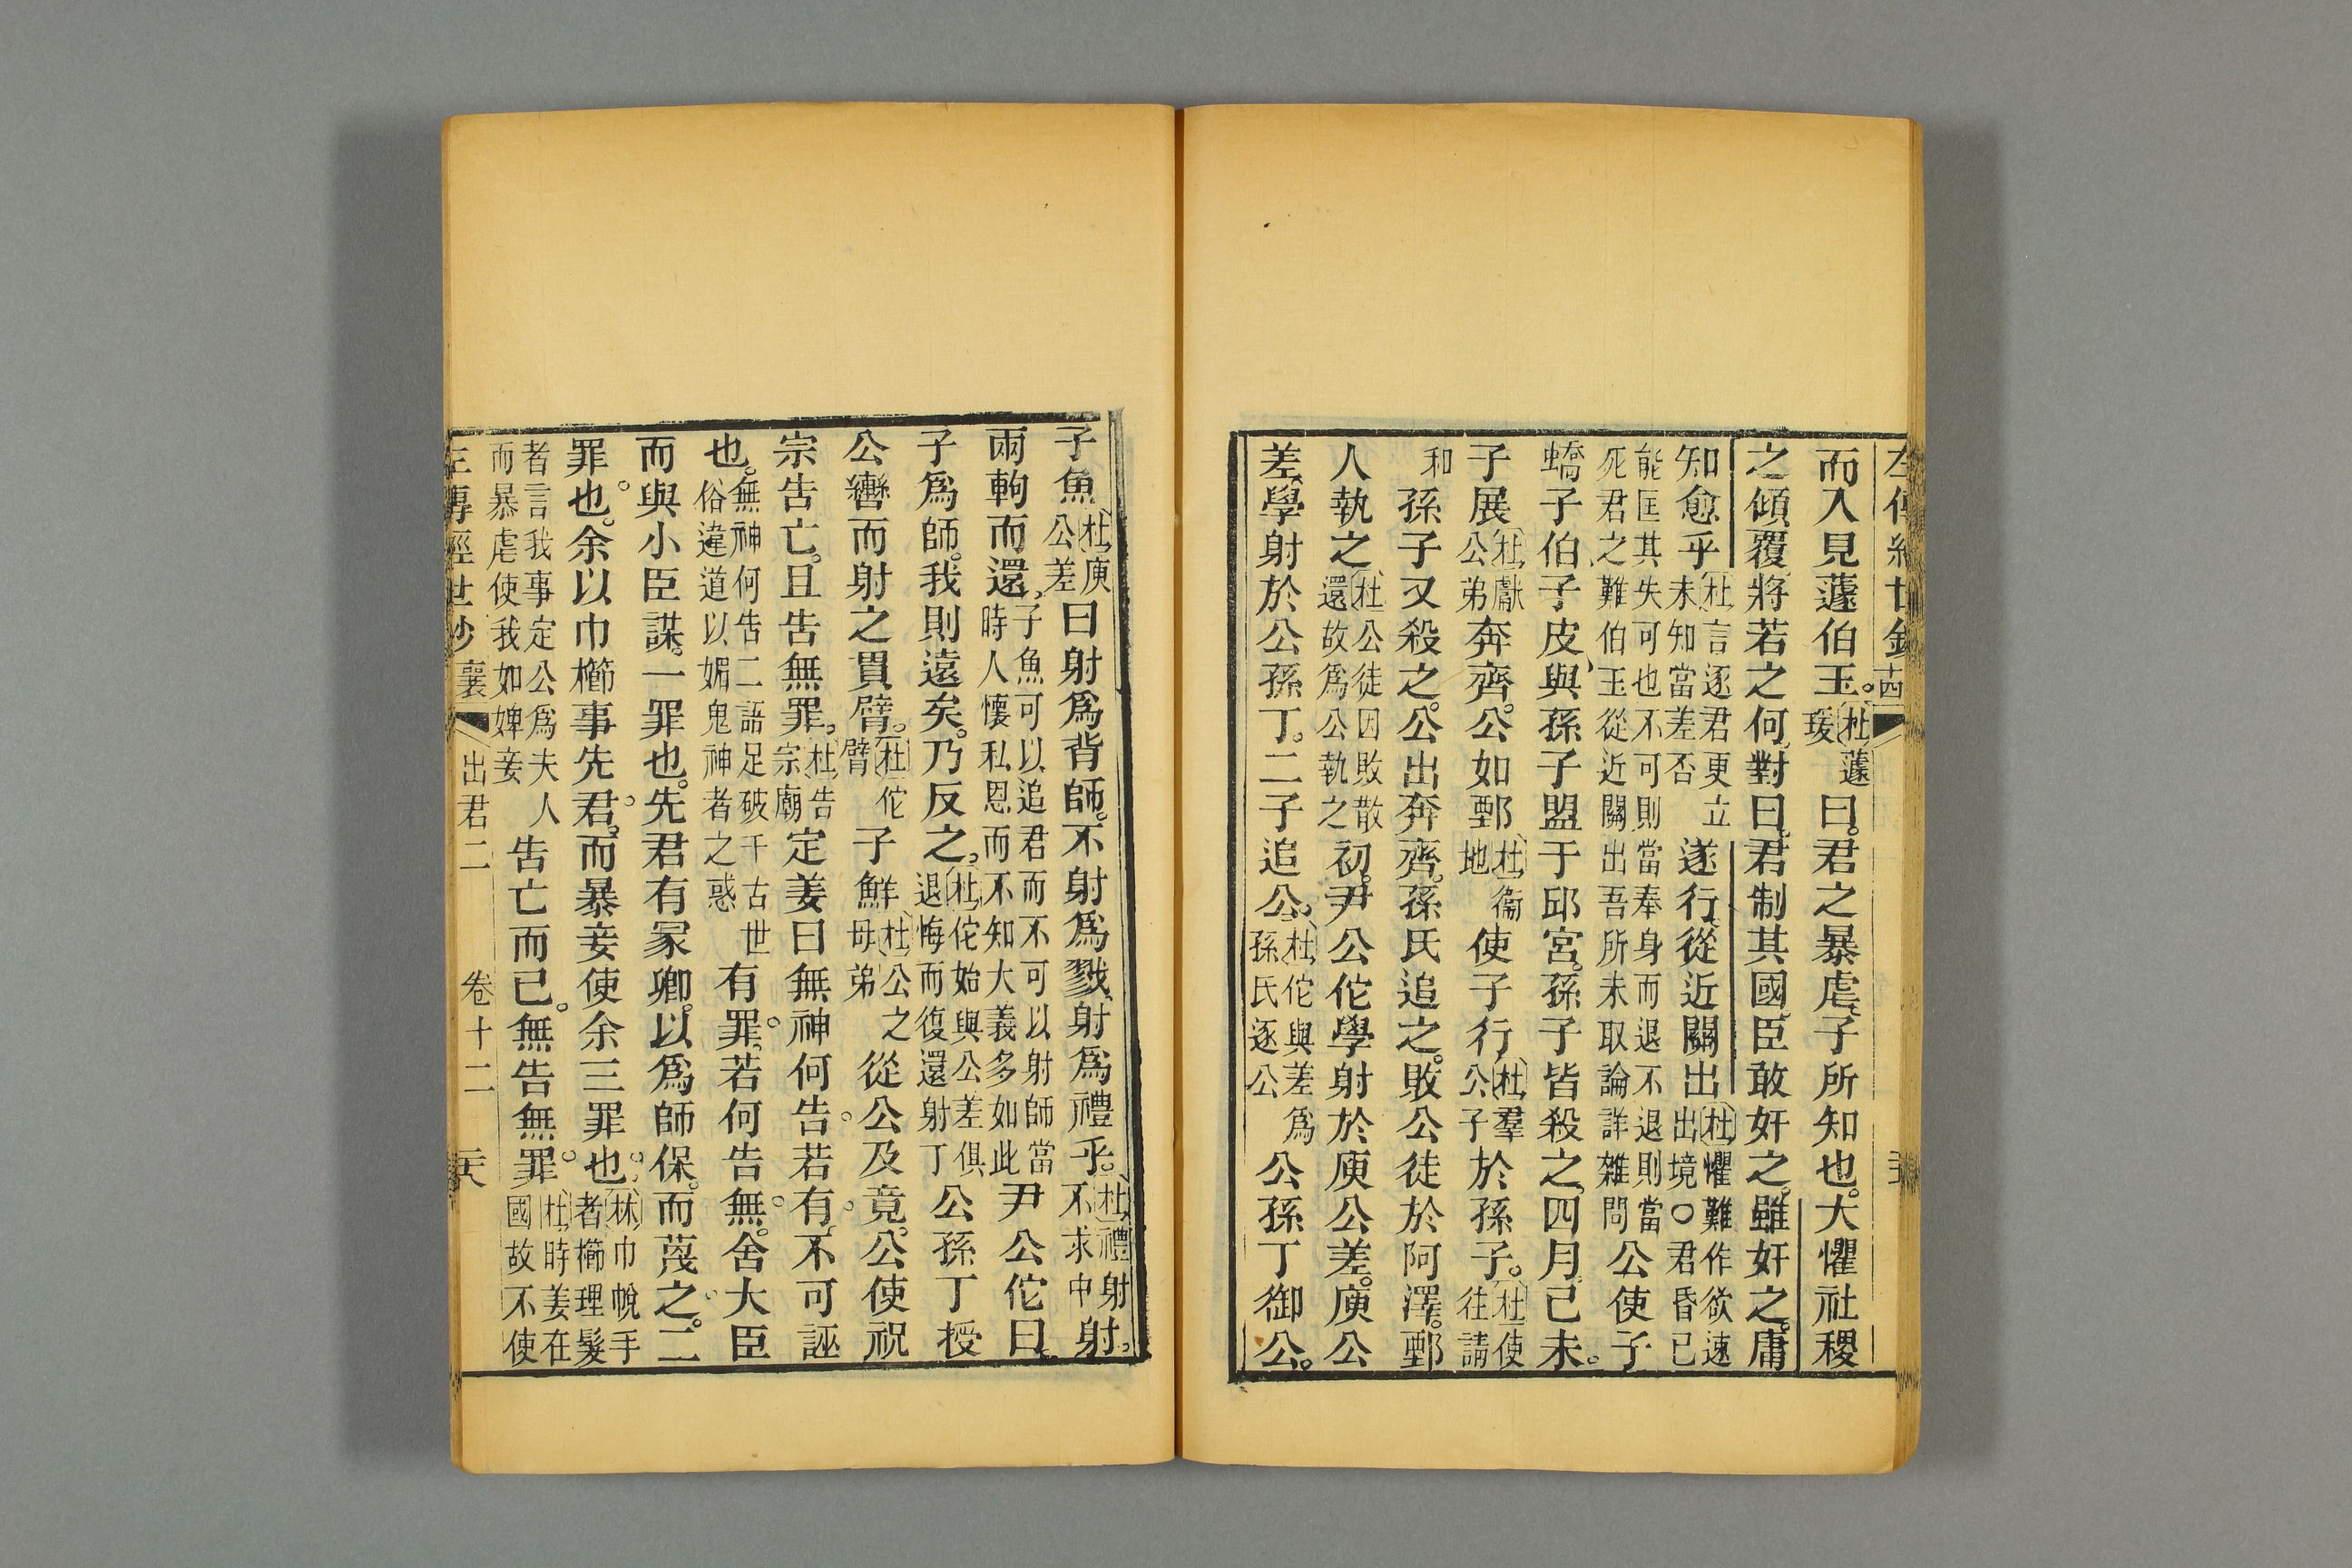 而入見蘧伯玉。杜蘧瑗曰。君之暴虐、子所知也。大懼社稷
之傾覆、將若之何。對曰。君制其國、臣敢奸之。雖奸之。庸
知愈乎杜言逐君更立未知當差否遂行、從近關出杜懼難作欲速出境〇君昏已
能匡其失可也不可則當奉身而退不退則當死君之難伯玉從近關出吾所未取論詳雜問公使子
蟜子伯、子皮、與孫子盟于邱宮。孫子皆殺之。四月。己未。
子展杜獻公弟奔齊。公如鄄杜衞地使子行杜羣公子於孫子。杜使往請
和孫子又殺之。公出奔齊。孫氏追之。敗公徒於阿澤。鄄
人執之杜公徒因敗散還故爲公執之初。尹公佗學射於庾公差。庾公
差學射於公孫丁。二子追公。杜佗與差爲孫氏逐公公孫丁御公。
子魚杜庾公差曰射爲背師。不射爲戮、射爲禮乎。杜禮射不求中射
兩軥而還、子魚可以追君而不可以射師當時人懷私恩而不知大義多如此尹公佗曰
子爲師。我則遠矣。乃反之。杜佗始與公差俱退悔而復還射丁公孫丁授
公轡而射之貫臂。杜佗臂子鮮杜公之母弟從公及竟。公使祝
宗告亡。且告無罪。杜告宗廟定姜曰無神何告。若有。不可誣
也。無神何告二語足破千古世俗違道以媚鬼神者之惑有罪。若何告無。舍大臣
而與小臣謀。一罪也。先君有冢卿。以爲師保。而蔑之。二
罪也。余以巾櫛事先君。而暴妾使余三罪也。林巾帨手者櫛理髮
者言我事定公爲夫人而暴虐使我如婢妾告亡而已。無告無罪。杜時姜在國故不使
左傳經世鈔 襄 出君二 卷十二